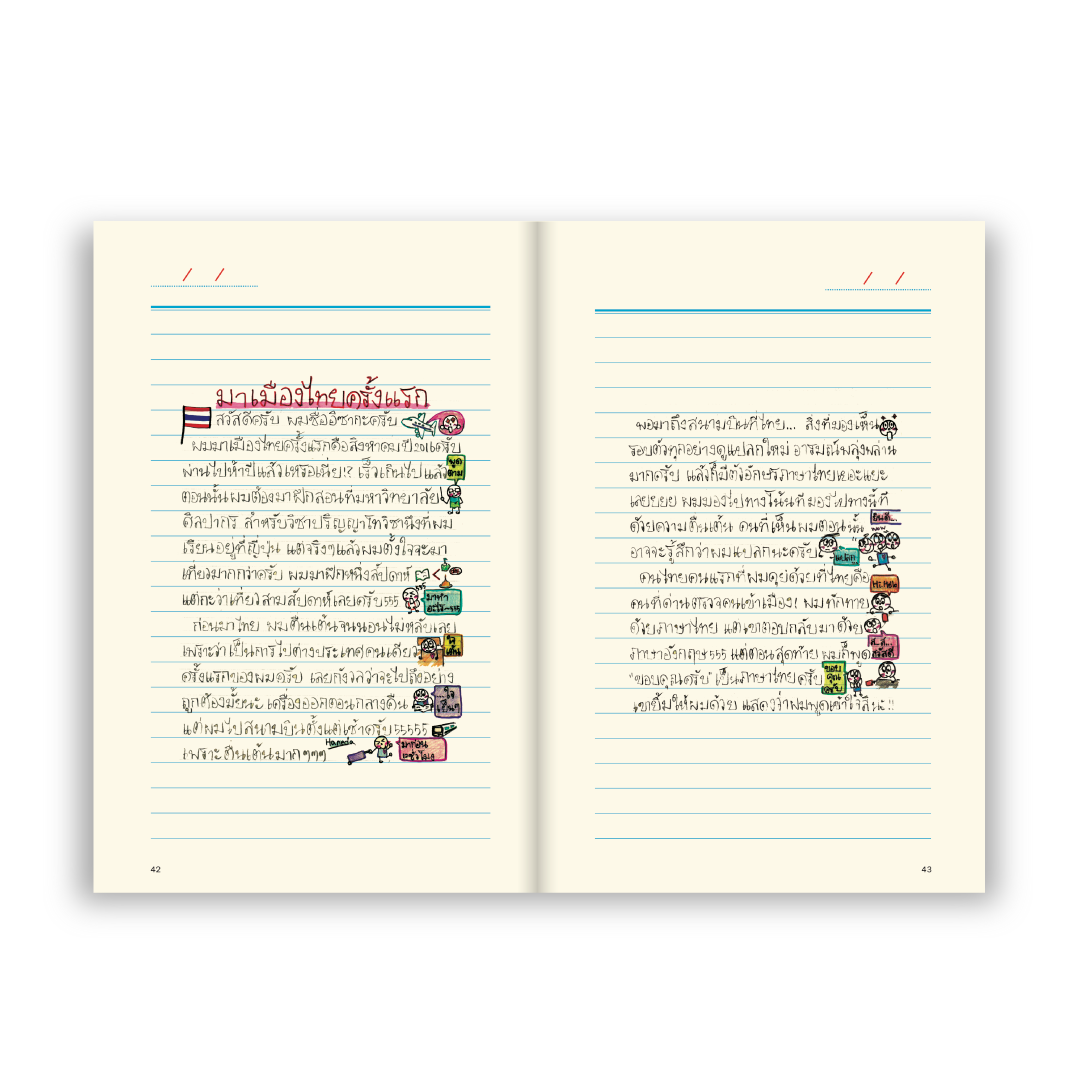 มาเมืองไทยครั้งแรก
สวัสดีครับ ผมชื่ออิซากะครับ
ผมมาเมืองไทยครั้งแรกคือสิงหาคมปี2016ครับ
ผ่านไปห้าปีแล้วเหรอเนี่ย!? เร็วเกินไปแล้ว
พูด
ตาม
ตอนนั้นผมต้องมาฝึกสอนที่มหาวิทยาลัย
ศิลปากร สำหรับวิชาปริญญาโทวิชานึงที่ผม
เรียนอยู่ที่ญี่ปุ่น แต่จริงๆแล้วผมตั้งใจจะมา
เที่ยวมากกว่าครับ ผมมาฝึกหนึ่งสัปดาห์
แต่กะว่าเที่ยวสามสัปดาห์เลยครับ555
มาทำ
อะไร~555
ก่อนมาไทย ผมตื่นเต้นจนนอนไม่หลับเลย
เพราะว่าเป็นการไปต่างประเทศคนเดียว
ครั้งแรกของผมครับ เลยกังวลว่าจะไปถึงอย่าง
ถูกต้องมั้ยนะ เครื่องออกตอนกลางคืน
...ใจ
เย็นๆ
แต่ผมไปสนามบินตั้งแต่เช้าครับ55555
เพราะตื่นเต้นมากๆๆๆ
Haneda
มาก่อน
12ชั่วโมง
42
พอมาถึงสนามบินที่ไทย... สิ่งที่มองเห็น
รอบตัวทุกอย่างดูแปลกใหม่ อารมณ์พลุ่งพล่าน
มากครับ แล้วก็มีตัวอักษรภาษาไทยเยอะแยะ
เลยยยย ผมมองไปทางโน้นทีมองไปทางนี้ที
ด้วยความตื่นเต้น คนที่เห็นผมตอนนั้น
อาจจะรู้สึกว่าผมแปลกนะครับ
แปลก
คนไทยคนแรกที่ผมคุยด้วยที่ไทยคือ
คนที่ด่านตรวจคนเข้าเมือง! ผมทักทาย
ด้วยภาษาไทย แต่เขาตอบกลับมาด้วย
ภาษาอังกฤษ555 แต่ตอนสุดท้าย ผมก็พูด
ส..ส...
สวัสดี
"ขอบคุณครับ" เป็นภาษาไทยครับ
ขอบ
คุณ
ครับ
เขายิ้มให้ผมด้วย แสดงว่าผมพูดเข้าใจสินะ!!
43